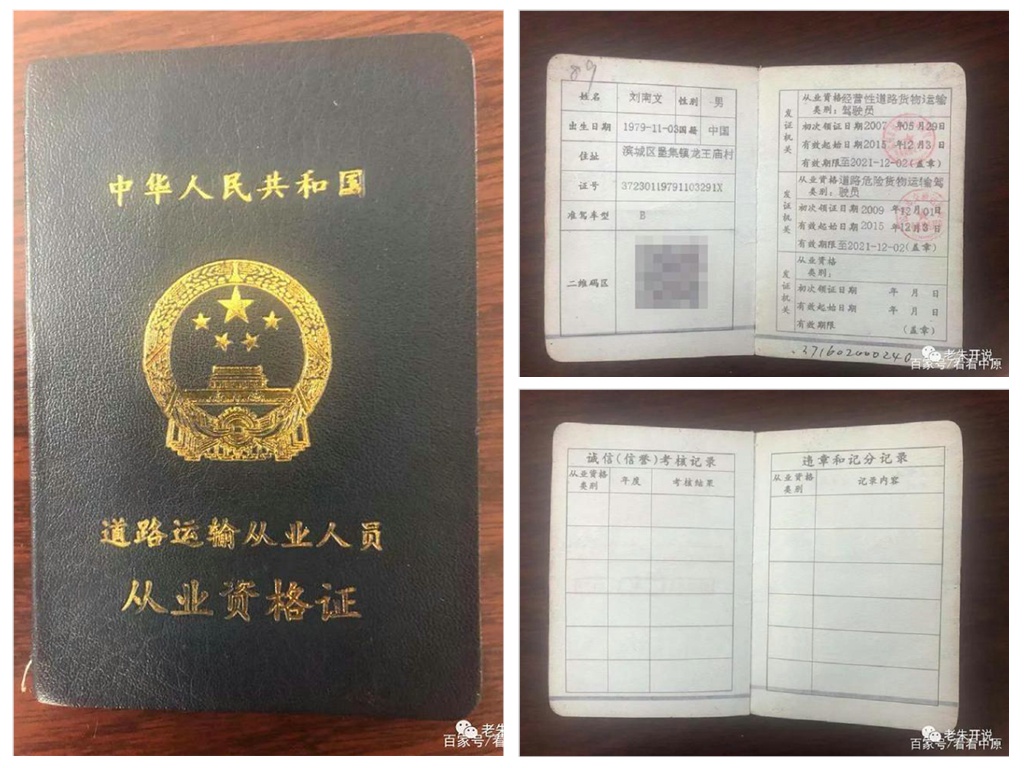 中华人民共和国
道路运输从业人员
从业资格证
老朱
百家号/看
89
姓名 刘南文 性别 男
出生日期 1979-11-03 国籍 中国
住址 滨城区里集镇龙王庙村
证号 37230119791103291X
准驾车型 B
二维码区
发证机关
从业资格 经营性道路货物运输
类别: 驾驶员
初次领证日期 2007 年05月29日
有效起始日期 2015 年12月3日
有效期限 至2021-12-02(盖章)
发证机关
从业资格 道路危险货物运输驾
类别: 驶员
初次领证日期 2009 年12月01日
有效起始日期 2015 年12月3日
有效期限 至2021-12-02(盖章)
发证机关
从业资格
类别:
初次领证日期 年 月 日
有效起始日期 年 月 日
有效期限 (盖章)
371602000240
老朱开说
百家号/看看中原
诚信(信誉)考核记录
从业资格类别 年度 考核结果
违章和记分记录
从业资格类别 记录内容
老朱开说
百家号/看看中原